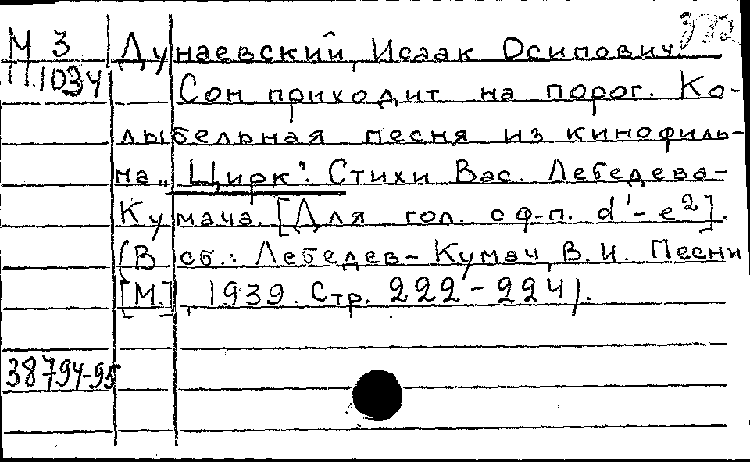 М 3 Дунаевский, Исаак Осипович.
11.1034 Сон приходит на порог. Ко-
лыбельная песня из кинофиль-
ма „Цирк". Стихи Вас. Лебедева-
Кумача. [Для гол. с ф-п. d'-e²].
(В сб.: Лебедев-Кумач, В. И. Песни
[М.], 1939. Стр. 222-224).
38794-95